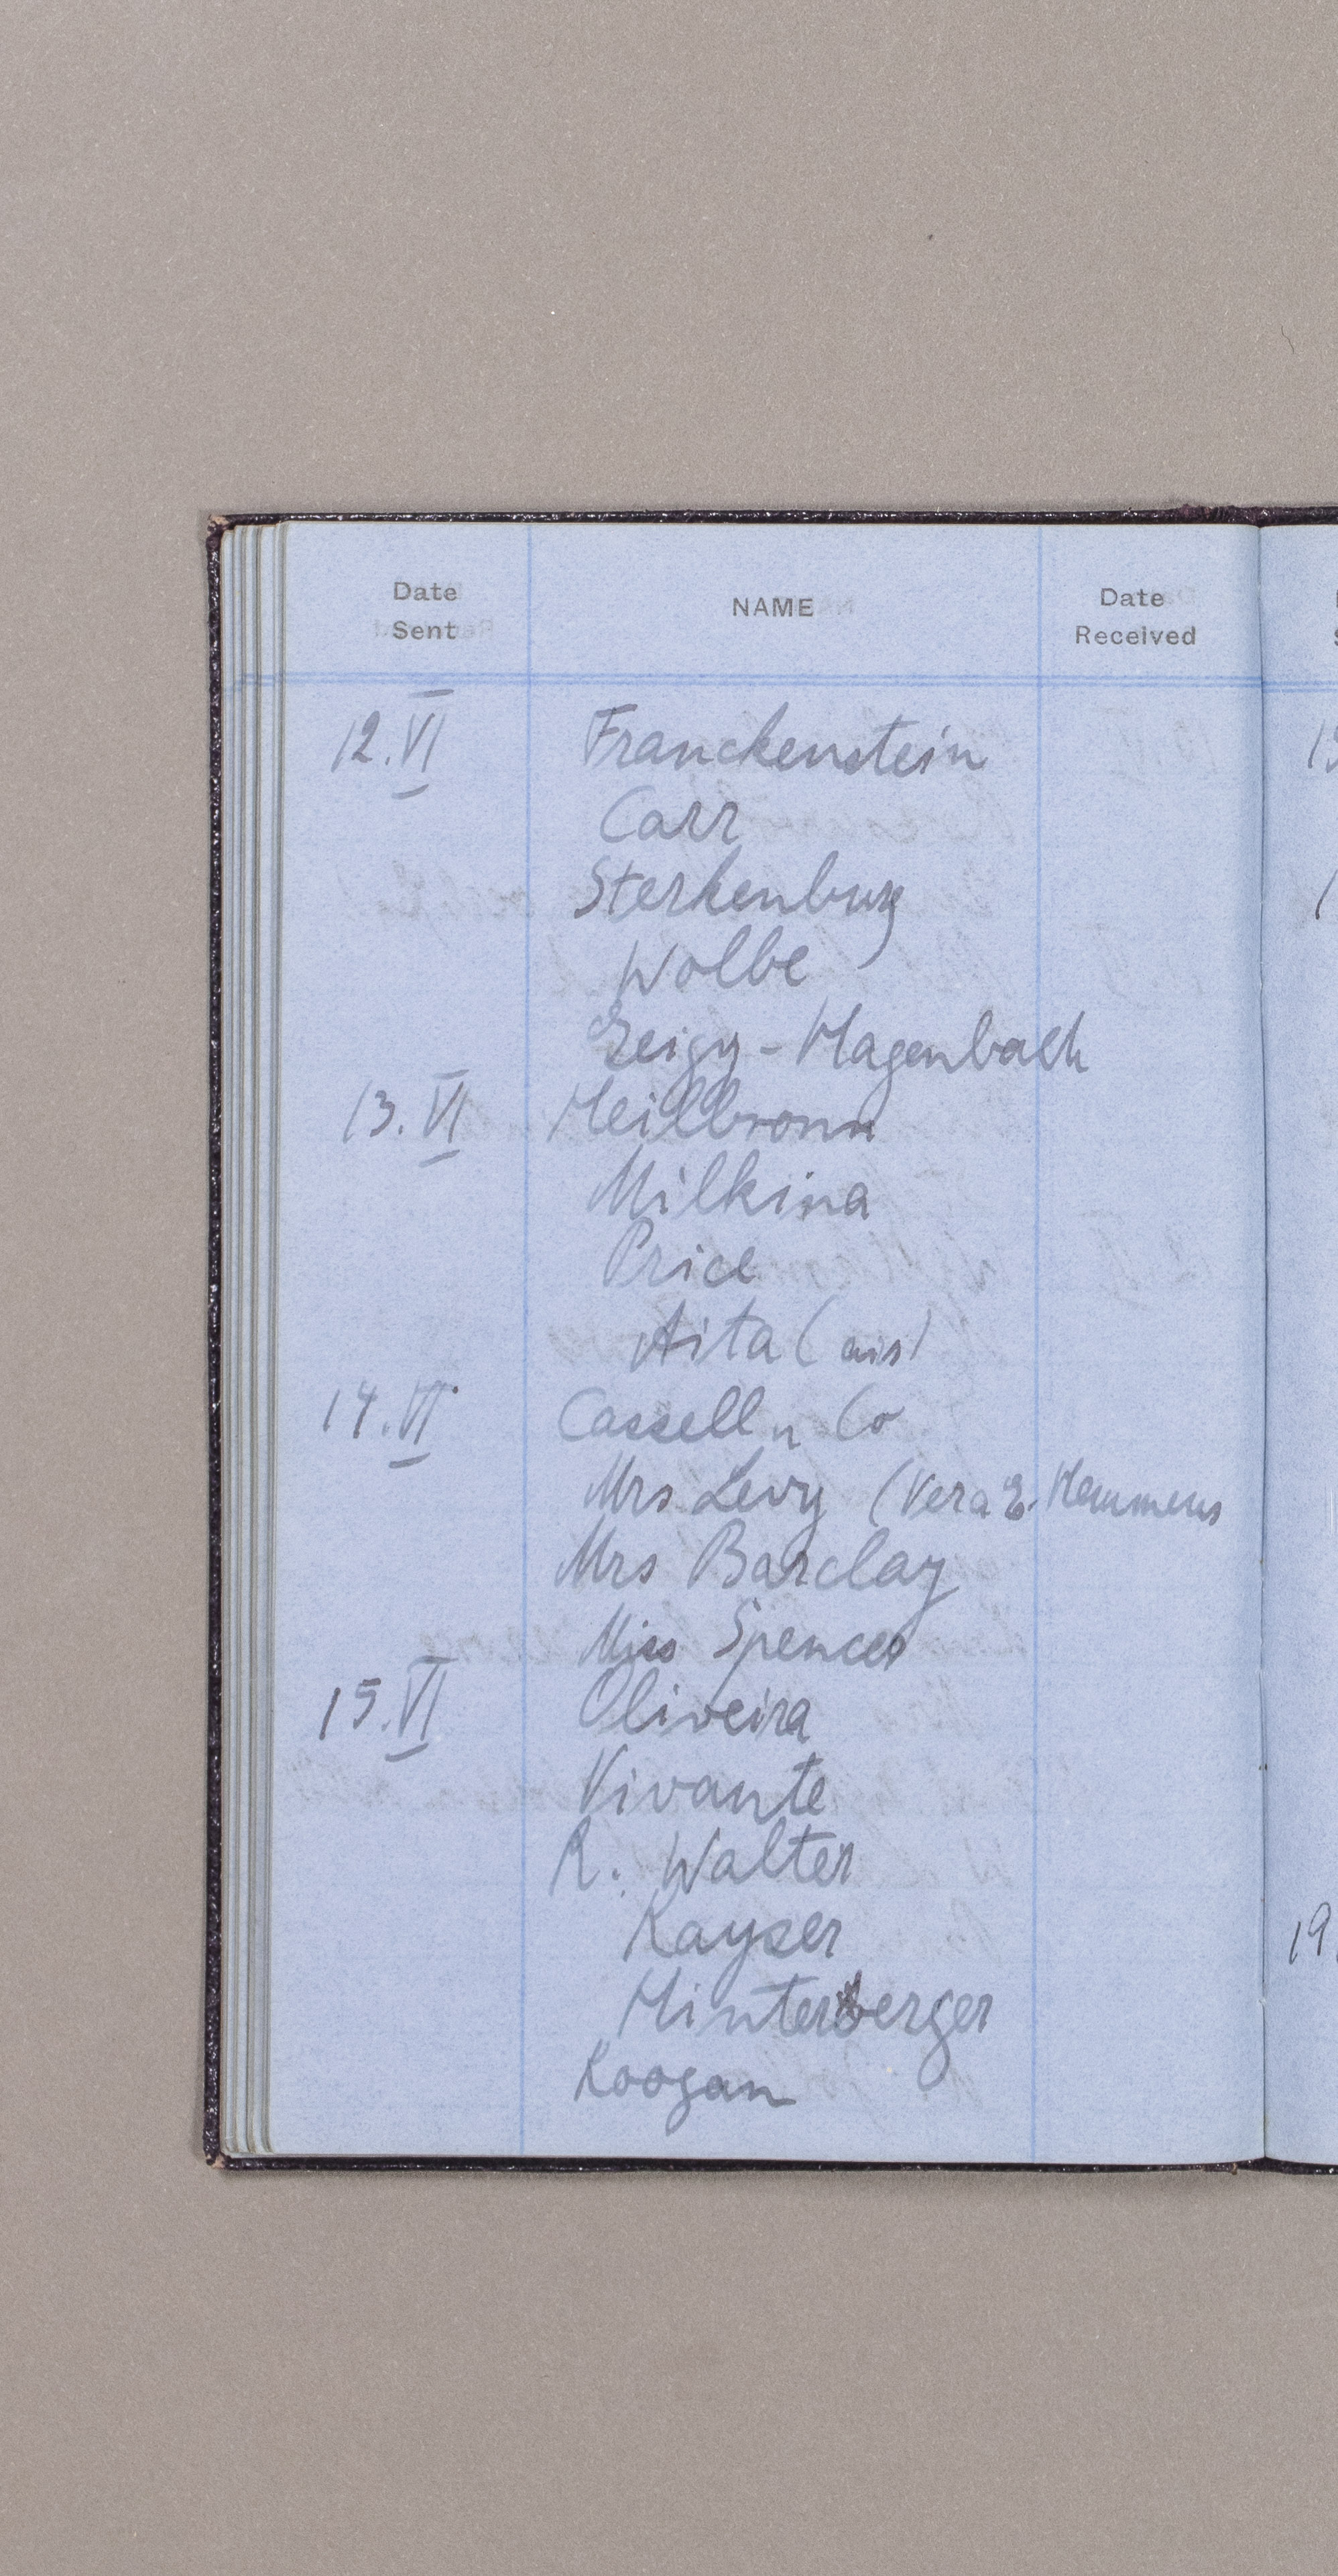 Date Sent NAME Date Received
12.VI Franckenstein
Carr
Sterkenburg
Wolbe
Geigy - Hagenbach
13.VI Heilbronn
Milkina
Price
Aita (
14.VI Cassell u Co
Mrs Levy (Vera E. Hemmens
Mrs Barclay
Miss Spencer
15.VI Oliveira
Vivante
R. Walter
Kayser
Hinterberger
Koogan